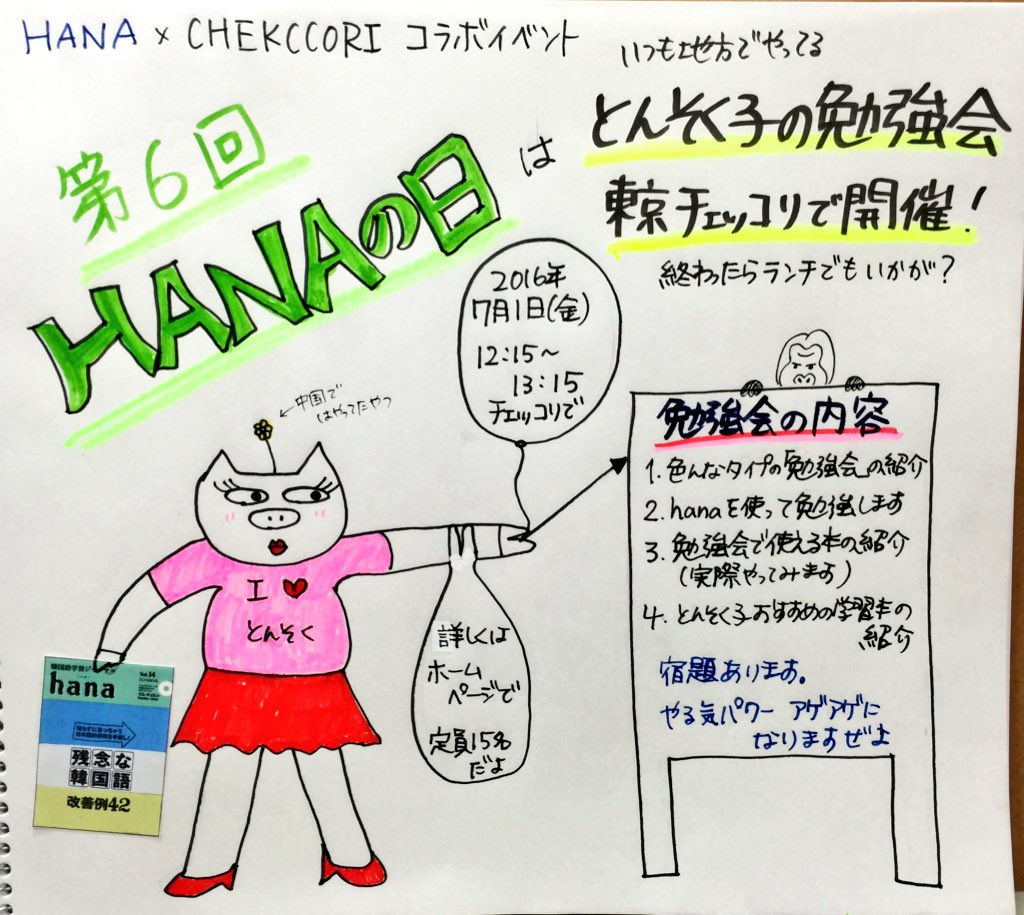 HANA × CHEKCCORI コラボイベント
第6回
HANAの日
は
いつも地方でやってる
とんそく子の勉強会
東京チェッコリで開催！
終わったらランチでもいかが？
2016年
7月1日(金)
12:15〜
13:15
チェッコリで
←中国で
はやってたやつ
I ♥
とんそく
詳しくは
ホーム
ページで
定員15名
だよ
hana
Vol.14
残念な
韓国語
改善例42
勉強会の内容
1. 色んなタイプの「勉強会」の紹介
2. hanaを使って勉強します
3. 勉強会で使える本の紹介
(実際やってみます)
4. とんそく子おすすめの学習本の
紹介
宿題あります。
やる気パワー アゲアゲに
なりますぜよ